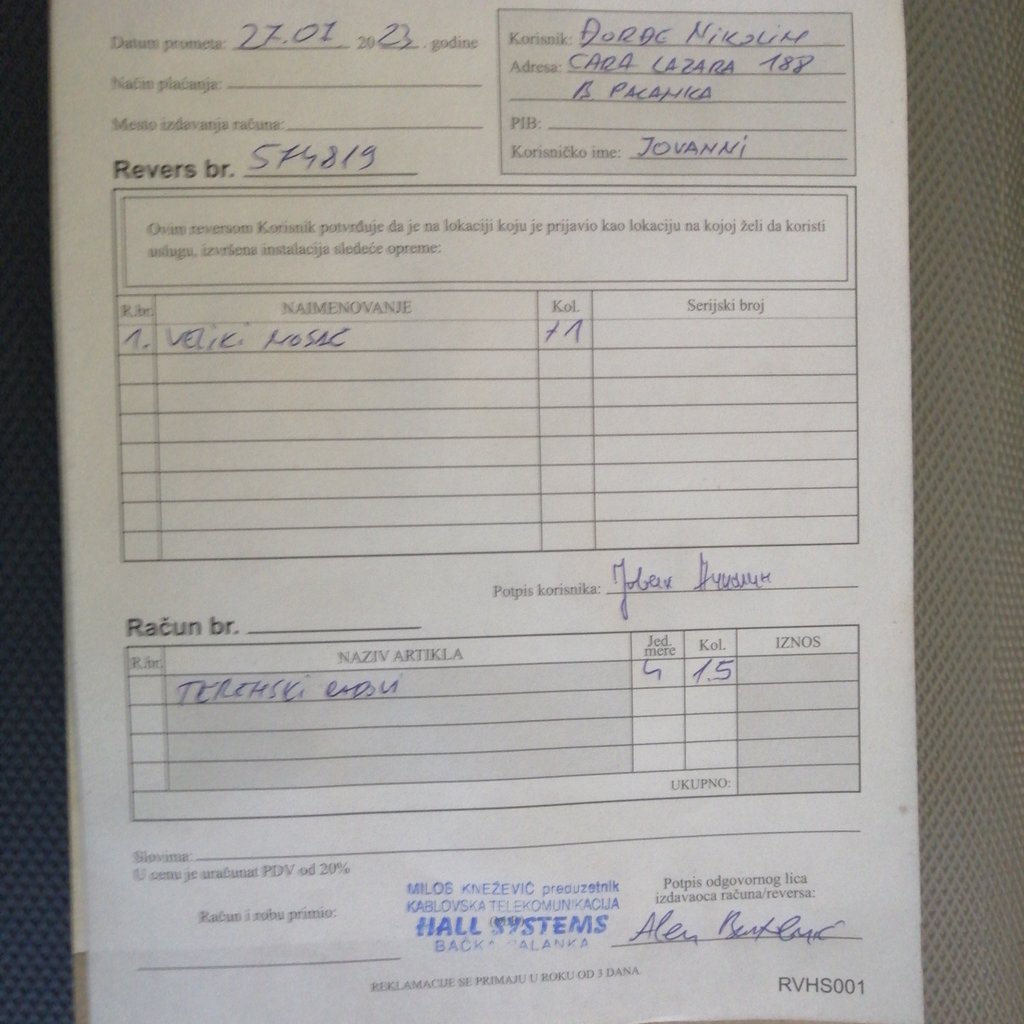 Datum prometa: 27.07 2023. godine
Način plaćanja:
Mesto izdavanja računa:
Revers br. 574819
Korisnik: ĐORĐE NIKOLIN
Adresa: CARA LAZARA 188
B PALANKA
PIB:
Korisničko ime: JOVANNI
Ovim reversom Korisnik potvrđuje da je na lokaciji koju je prijavio kao lokaciju na kojoj želi da koristi
uslugu, izvršena instalacija sledeće opreme:
R.br. NAIMENOVANJE Kol. Serijski broj
1. VELIKI NOSAČ +1
Potpis korisnika:
Račun br.
R.br. NAZIV ARTIKLA Jed. mere Kol. IZNOS
TERENSKI RADOVI 1.5
UKUPNO:
Slovima:
U cenu je uračunat PDV od 20%
Račun i robu primio:
MILOŠ KNEŽEVIĆ preduzetnik
KABLOVSKA TELEKOMUNIKACIJA
HALL SYSTEMS
BAČKA PALANKA
Potpis odgovornog lica
izdavaoca računa/reversa:
Alen
REKLAMACIJE SE PRIMAJU U ROKU OD 3 DANA
RVHS001